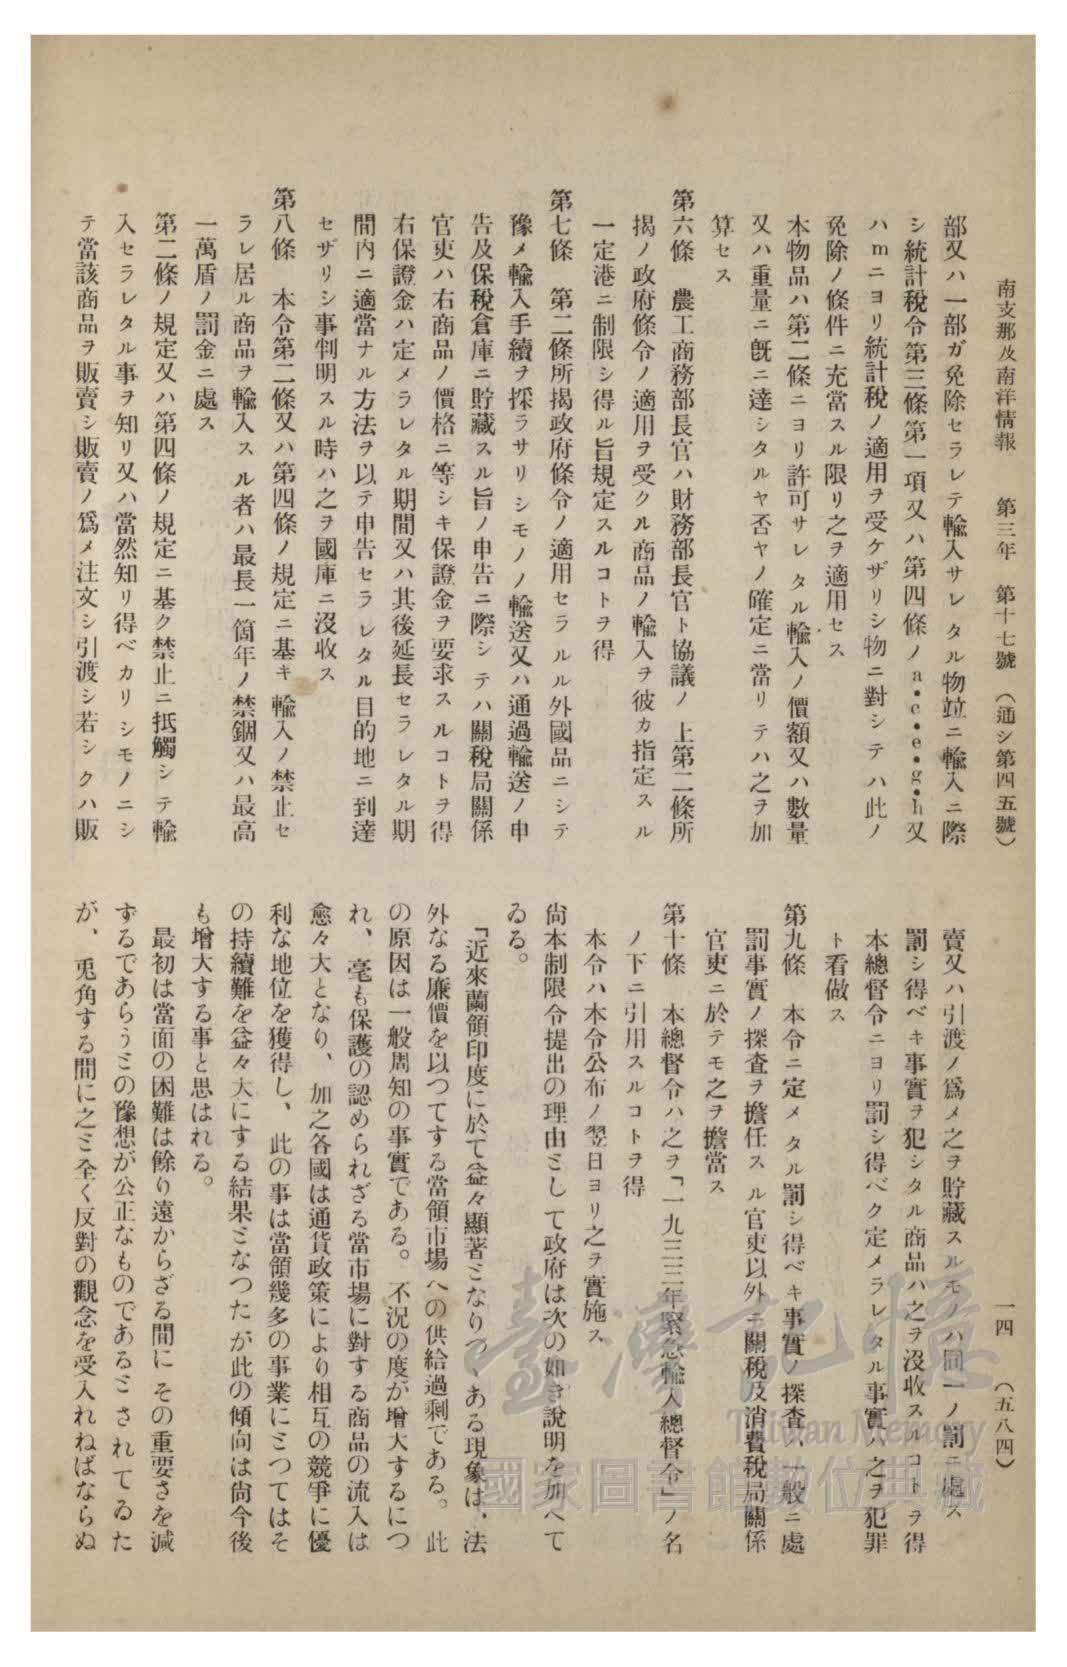 南支那及南洋情報　第三年　第十七號　（通シ第四五號）　一四　（五八四）
部又ハ一部ガ免除セラレテ輸入サレタル物竝ニ輸入ニ際
シ統計税令第三條第一項又ハ第四條ノa・c・e・g・h又
ハmニヨリ統計税ノ適用ヲ受ケザリシ物ニ對シテハ此ノ
免除ノ條件ニ充當スル限リ之ヲ適用セス
本物品ハ第二條ニヨリ許可サレタル輸入ノ價額又ハ數量
又ハ重量ニ旣ニ達シタルヤ否ヤノ確定ニ當リテハ之ヲ加
算セス
第六條　農工商務部長官ハ財務部長官ト協議ノ上第二條所
揭ノ政府條令ノ適用ヲ受クル商品ノ輸入ヲ彼カ指定スル
一定港ニ制限シ得ル旨規定スルコトヲ得
第七條　第二條所揭政府條令ノ適用セラルル外國品ニシテ
豫メ輸入手續ヲ採ラサリシモノノ輸送又ハ通過輸送ノ申
告及保税倉庫ニ貯藏スル旨ノ申告ニ際シテハ關税局關係
官吏ハ右商品ノ價格ニ等シキ保證金ヲ要求スルコトヲ得
右保證金ハ定メラレタル期間又ハ其後延長セラレタル期
間内ニ適當ナル方法ヲ以テ申告セラレタル目的地ニ到達
セザリシ事判明スル時ハ之ヲ國庫ニ沒收ス
第八條　本令第二條又ハ第四條ノ規定ニ基キ輸入ノ禁止セ
ラレ居ル商品ヲ輸入スル者ハ最長一箇年ノ禁錮又ハ最高
一萬盾ノ罰金ニ處ス
第二條ノ規定又ハ第四條ノ規定ニ基ク禁止ニ抵觸シテ輸
入セラレタル事ヲ知リ又ハ當然知リ得ベカリシモノニシ
テ當該商品ヲ販賣シ販賣ノ爲メ注文シ引渡シ若シクハ販
賣又ハ引渡ノ爲メ之ヲ貯藏スルモノハ同一ノ罰ニ處ス
罰シ得ベキ事實ヲ犯シタル商品ハ之ヲ沒收スルコトヲ得
本總督令ニヨリ罰シ得ベク定メラレタル事實ハ之ヲ犯罪
ト看做ス
第九條　本令ニ定メタル罰シ得ベキ事實ノ探査ハ一般ニ處
罰事實ノ探査ヲ擔任スル官吏以外ニ關税及消費税局關係
官吏ニ於テモ之ヲ擔當ス
第十條　本總督令ハ之ヲ「一九三三年緊急輸入總督令」ノ名
ノ下ニ引用スルコトヲ得
本令ハ本令公布ノ翌日ヨリ之ヲ實施ス
尙本制限令提出の理由として政府は次の如き說明を加へて
ゐる。
「近來蘭領印度に於て益々顯著となりつゝある現象は、法
外なる廉價を以つてする當領市場への供給過剩である。此
の原因は一般周知の事實である。不況の度が增大するにつ
れ、毫も保護の認められざる當市場に對する商品の流入は
愈々大となり、加之各國は通貨政策により相互の競爭に優
利な地位を獲得し、此の事は當領幾多の事業にとつてはそ
の持續難を益々大にする結果となつたが此の傾向は尙今後
も增大する事と思はれる。
最初は當面の困難は餘り遠からざる間にその重要さを減
ずるであらうとの豫想が公正なものであるとされてゐた
が、兎角する間に之と全く反對の觀念を受入れねばならぬ
臺灣記憶
Taiwan Memory
國家圖書館數位典藏